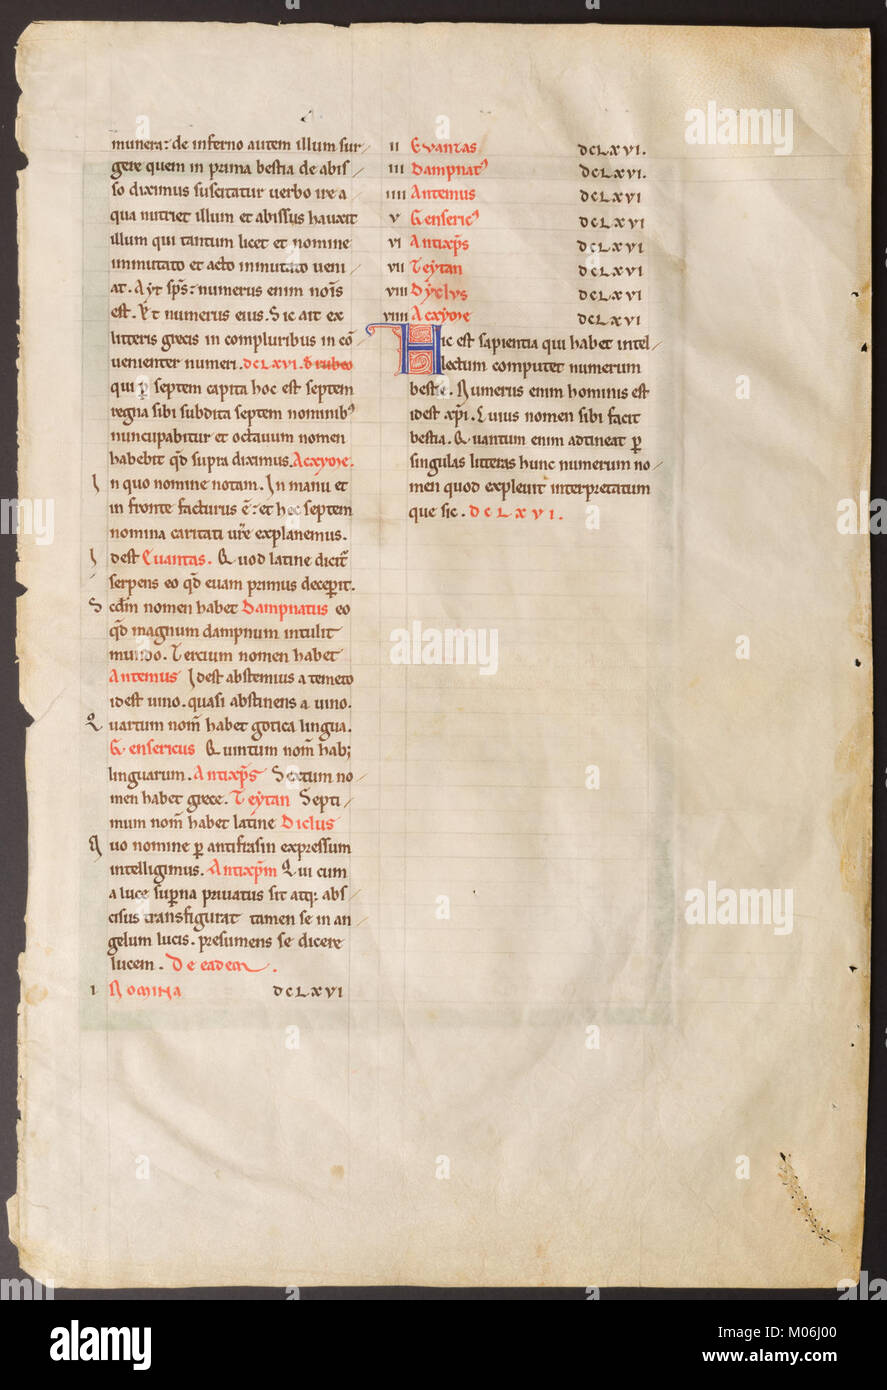 munera: de inferno autem illum sur
gere quem in prima bestia de abis
so diximus suscitatur uerbo ire a
qua nutriet illum et abissus hauxit
illum qui tantum licet et nomine
inmutato et acto inmutato ueni
at. Ayt sp̅s: numerus enim noi̅s
est. Et numerus eius. Sic ait ex
litteris grecis in compluribus in co̅
uenienter numeri. DCLXVI.
qui ꝑ septem capita hoc est septem
regna sibi subdita septem nominibꝰ
nuncupabitur et octauum nomen
habebit qd̅ supra diximus. Acxyoie.
In quo nomine notam. In manu et
in fronte facturus e̅: et hec septem
nomina caritati ur̅e explanemus.
Idest Euantas. Quod latine dicit̅
serpens eo qd̅ euam primus deceperit.
Scd̅m nomen habet Dampnatus eo
qd̅ magnum dampnum intulit
mundo. Tercium nomen habet
Antemus Idest abstemius a temeto
idest uino. quasi abstinens a uino.
Quartum nom̅ habet gotica lingua.
Gensericus Quintum nom̅ hab;
linguarum. Antixp̅s Sextum no
men habet grece. Teytan Septi
mum nom̅ habet latine Diclus
Quo nomine ꝑ antifrasin expressum
intelligimus. Antixp̅m Qui cum
a luce suꝑna priuatus sit atq: abs
cisus transfigurat tamen se in an
gelum lucis. presumens se dicere
lucem. De eadem.
I Nomina DCLXVI
II Euantas DCLXVI.
III Dampnatꝰ DCLXVI.
IIII Antemus DCLXVI
V Gensericꝰ DCLXVI
VI Antixp̅s DCLXVI
VII Teytan DCLXVI
VIII Dyclus DCLXVI
VIIII Acxyoie DCLXVI
Hic est sapientia qui habet intel
lectum computet numerum
bestie. Numerus enim hominis est
idest xp̅i. Cuius nomen sibi facit
bestia. Quantum enim adtineat ꝑ
singulas litteras hunc numerum no
men quod expleuit interpretatum
que sic. DCLXVI.
alamy
alamy stock photo
M06J00
www.alamy.com